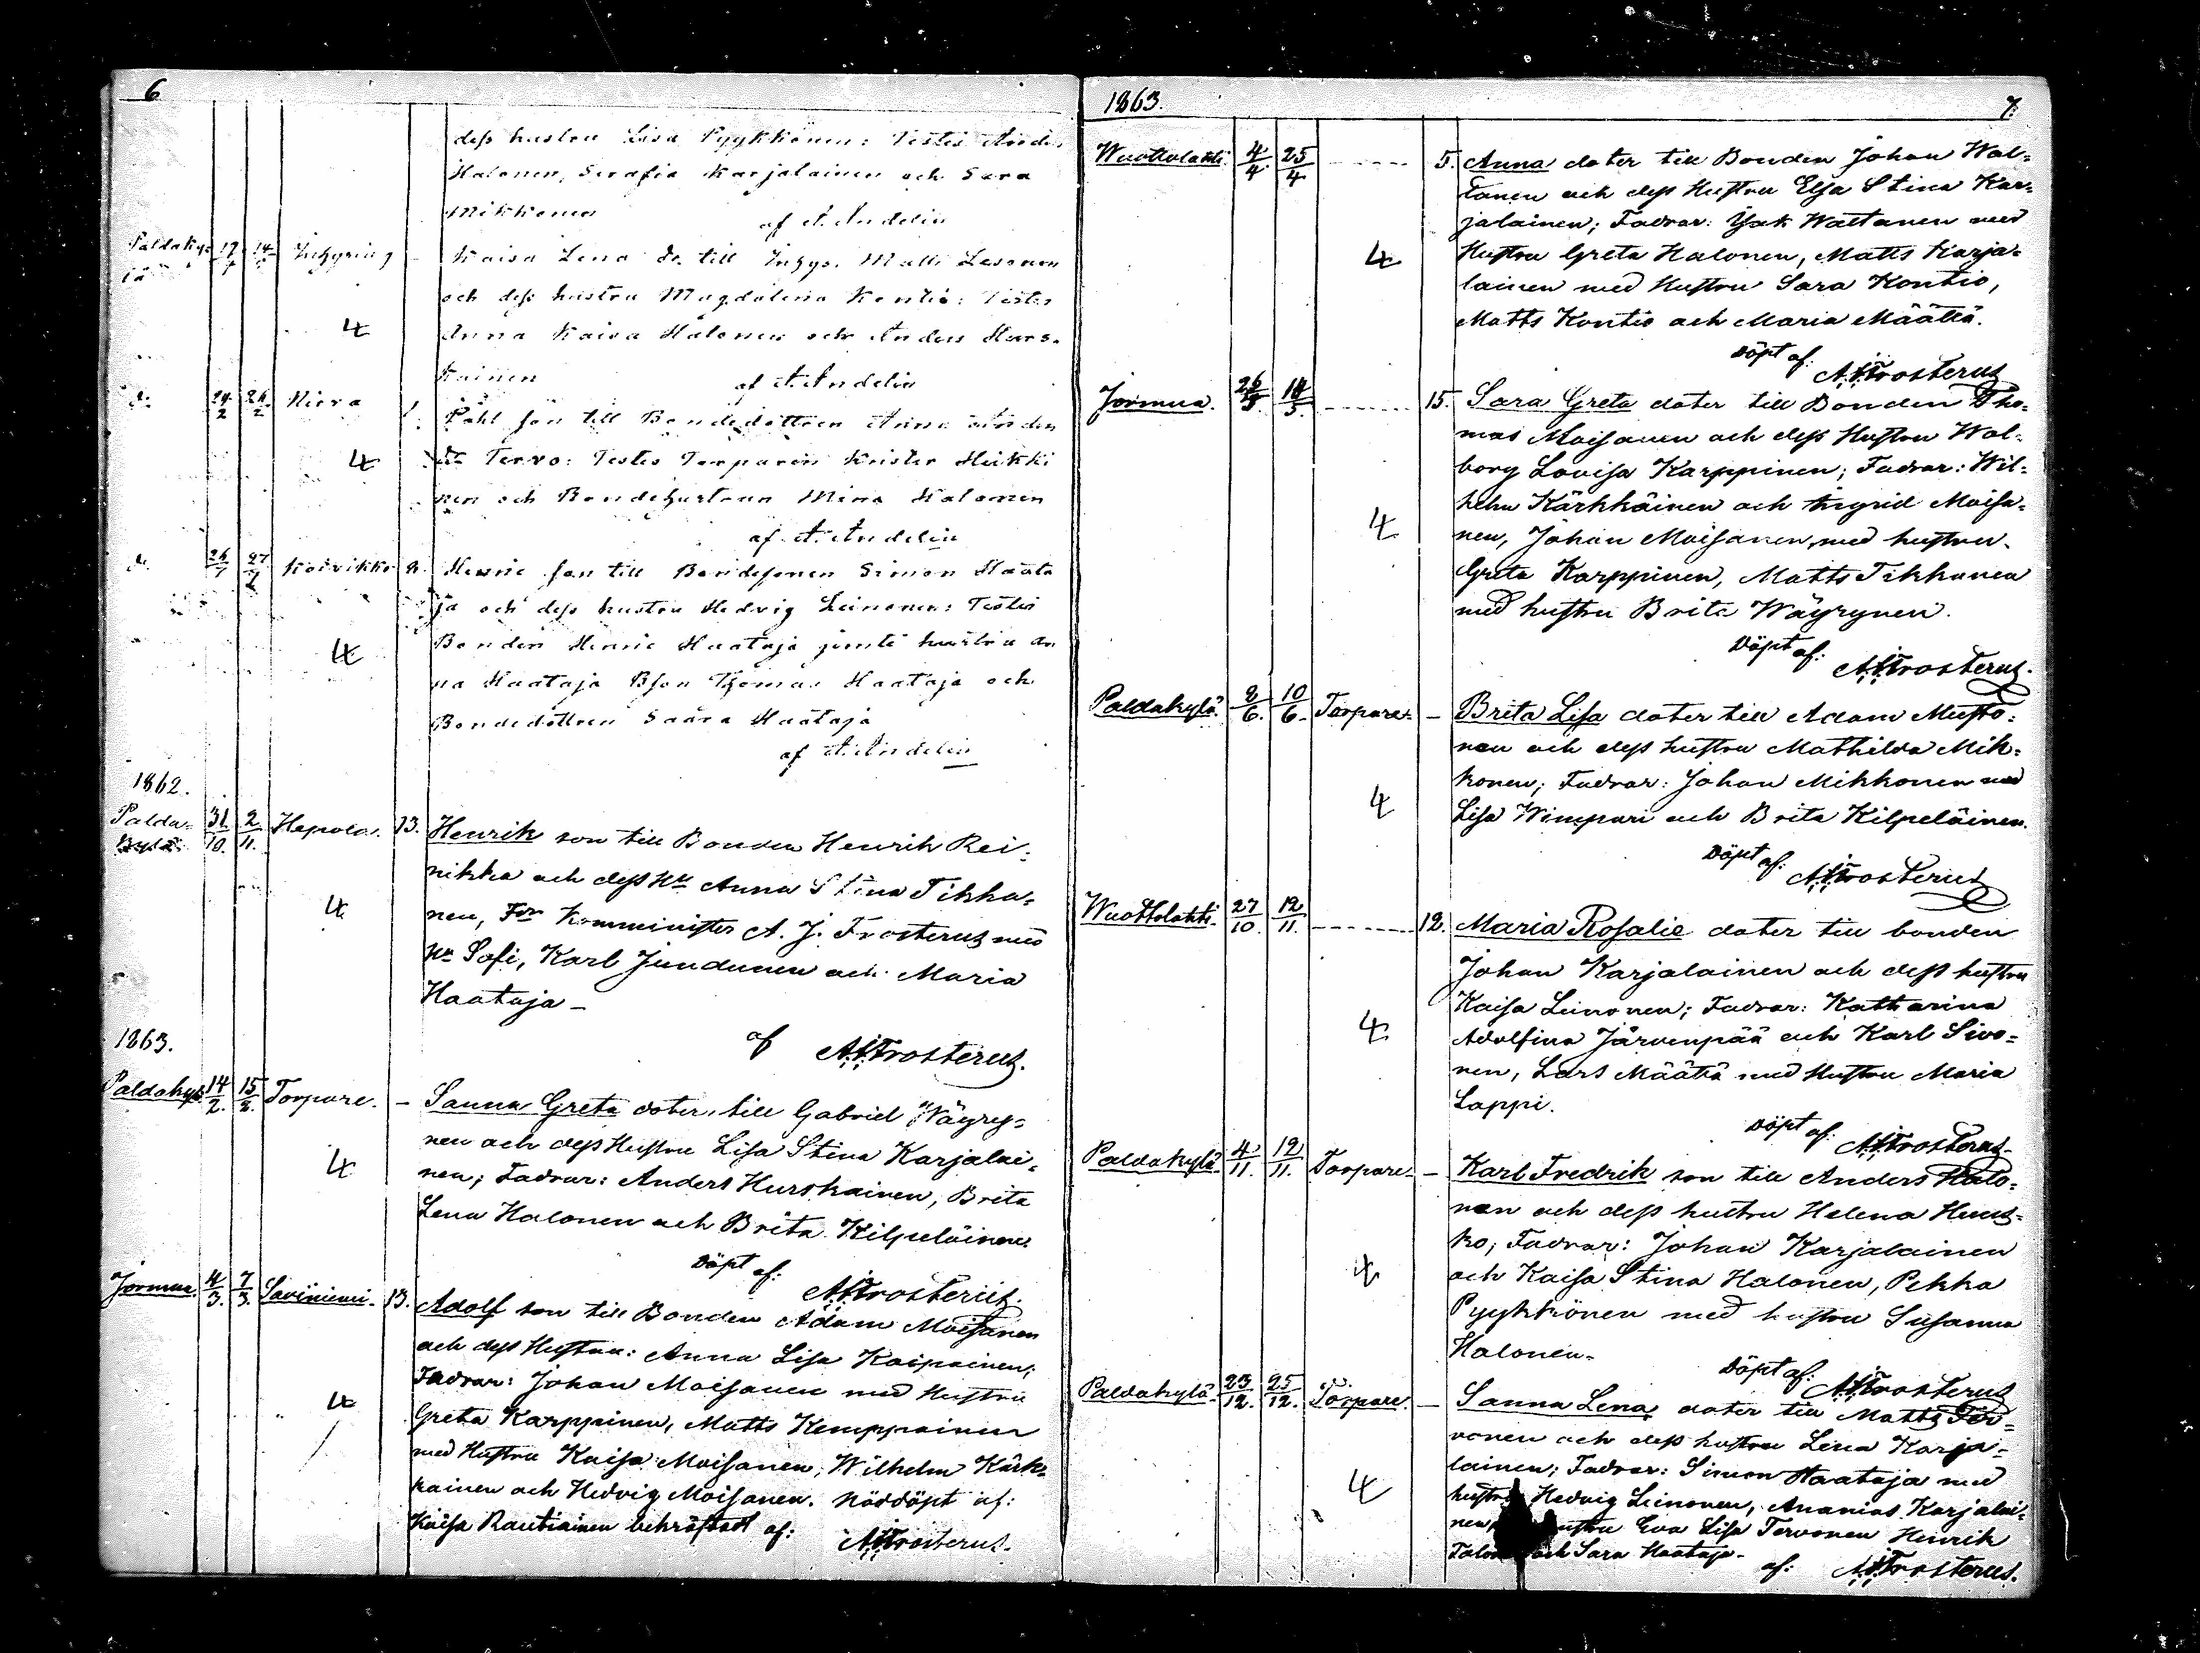 6
dess hustru Lisa Pyykkönen: Testes Anders
Halonen, Serafia Karjalainen och Sara
Mikkonen
af A. Andelin
Paldaky- 17 14 Inhysing Kaisa Lena dr. till Inhys. Matti Lesonen
lä och dess hustru Magdalena Kontio: Testes
4 Anna Kaisa Halonen och Anders Hurs-
kainen af A. Andelin
d: 24/2 26/2 Nicra Påhl son till Bondedottren Anna
Tervo: Testes Torparen Krister Heikki
4
nen och Bondehustrun Mina Halonen
af A. Andelin
d: 27 Koivikko Henric son till Bondesonen Simon Haata
ja och dess hustru Hedvig Leinonen: Testes
Bonden Henric Haataja jemte hustru An
4
na Haataja Bson Thomas Haataja och
Bondedottren Saara Haataja
af A. Andelin
1862.
Palda- 31/10. 2/11. Hepola. 13. Henrik son till Bonden Henrik Rei-
kylä. nikka och dess Hu Anna Stina Tikka-
4
nen, Fdr Kommnister A. J. Frosterus med
Hu Sofi, Karl Jundunen och Maria
Haataja –
af A.J.Frosterus.
1863.
Paldaky. 14/2. 15/2. Torpare. – Sanna Greta doter till Gabriel Wäyry-
nen och dess Hustru Lisa Stina Karjalai-
4
nen; Fadrar: Anders Hurskainen, Brita
Lena Halonen och Brita Kilpeläinen.
Döpt af: A.J.Frosterus.
Jormua. 4/3. 7/3. Saviniemi. 13. Adolf son till Bonden Adam Moisanen
och dess Hustru: Anna Lisa Kaipainen;
Fadrar: Johan Moisanen med Hustru
4
Greta Karppinen, Matts Kemppainen
med Hustru Kaisa Moisanen, Wilhelm Kärk-
kainen och Hedvig Moisanen. Nöddöpt af:
Kaisa Rautiainen bekräftadt af: A.J.Frosterus.
1863. 7.
Wuottolahti. 4/4 25/4 5. Anna doter till Bonden Johan Wat-
tanen och dess Hustru Elsa Stina Kar-
jalainen; Fadrar: Isak Wattanen med
4 Hustru Greta Halonen, Matts Karja-
lainen med Hustru Sara Kontio,
Matts Kontio och Maria Määttä.
Döpt af: A.J.Frosterus
Jormua. 15. Sara Greta doter till Bonden Tho-
mas Moisanen och dess Hustru Wal-
borg Lovisa Karppinen; Fadrar: Wil-
helm Kärkkäinen och Ingrid Moisa-
4 nen, Johan Moisanen med hustru
Greta Karppinen, Matts Tikkanen
med hustru Brita Wäyrynen.
Döpt af: A.J.Frosterus.
Paldakylä. 8/6. 10/6. Torpare. – Brita Lisa doter till Adam Musto-
nen och dess hustru Mathilda Mik-
konen; Fadrar: Johan Mikkonen med
4 Lisa Wimpari och Brita Kilpeläinen.
Döpt af: A.J.Frosterus
Wuottolahti. 27/10. 12/11. 12. Maria Rosalie doter till bonden
Johan Karjalainen och dess hustru
Kaisa Leinonen; Fadrar: Katharina
4 Adolfina Järvenpää och Karl Sivo-
nen, Lars Määttä med Hustru Maria
Lappi.
Döpt af: A.J.Frosterus.
Paldakylä. 4/11. 12/11. Torpare. – Karl Fredrik son till Anders Halo-
nen och dess hustru Helena Hurs-
ko; Fadrar: Johan Karjalainen
4 och Kaisa Stina Halonen, Pekka
Pyykkönen med hustru Susanna
Halonen.
Döpt af: A.J.Frosterus
Paldakylä. 23/12. 25/12. Torpare. – Sanna Lena doter till Matts Ter-
vonen och dess hustru Lena Karja-
lainen; Fadrar: Simon Haataja med
4 hustru Hedvig Leinonen, Ananias Karjalai-
nen, hustru Eva Lisa Tervonen Henrik
och Sara Haataja.
af: A.J.Frosterus.